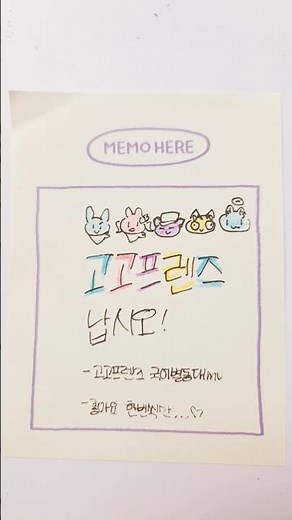 MEMO HERE
고고프렌즈
납시오!
- 고고프렌즈 국어별동대
- 한번씩만...♡